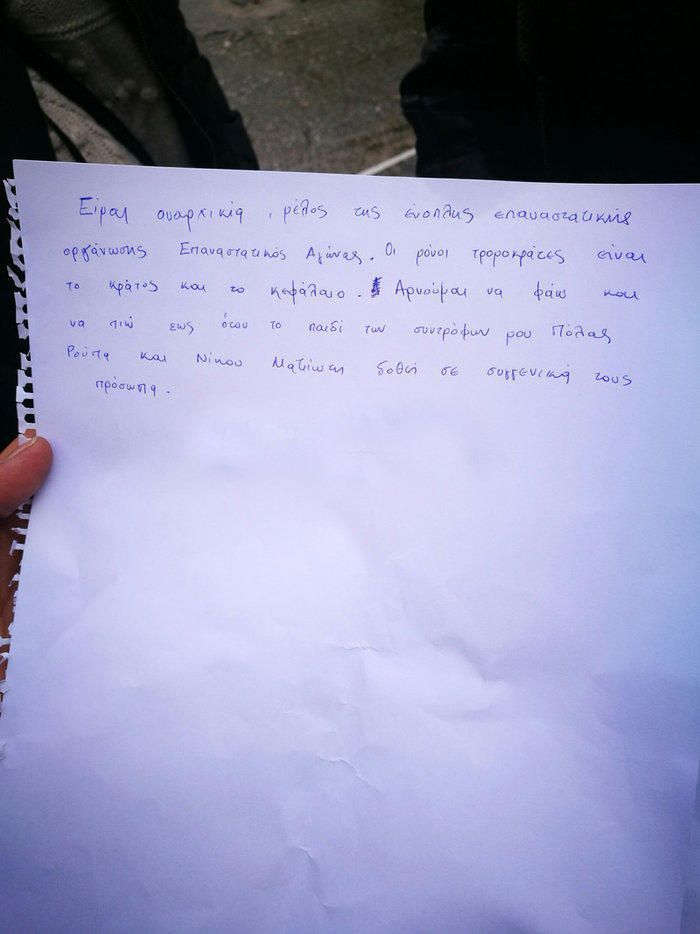 Είμαι αναρχικιά, μέλος της ένοπλης επαναστατικής
οργάνωσης Επαναστατικός Αγώνας. Οι μόνοι τρομοκράτες είναι
το κράτος και το κεφάλαιο. Αρνούμαι να φάω και
να πιώ εως ότου το παιδί των συντρόφων μου Πόλας
Ρούπα και Νίκου Μαζιώτη δοθεί σε συγγενικά τους
πρόσωπα.